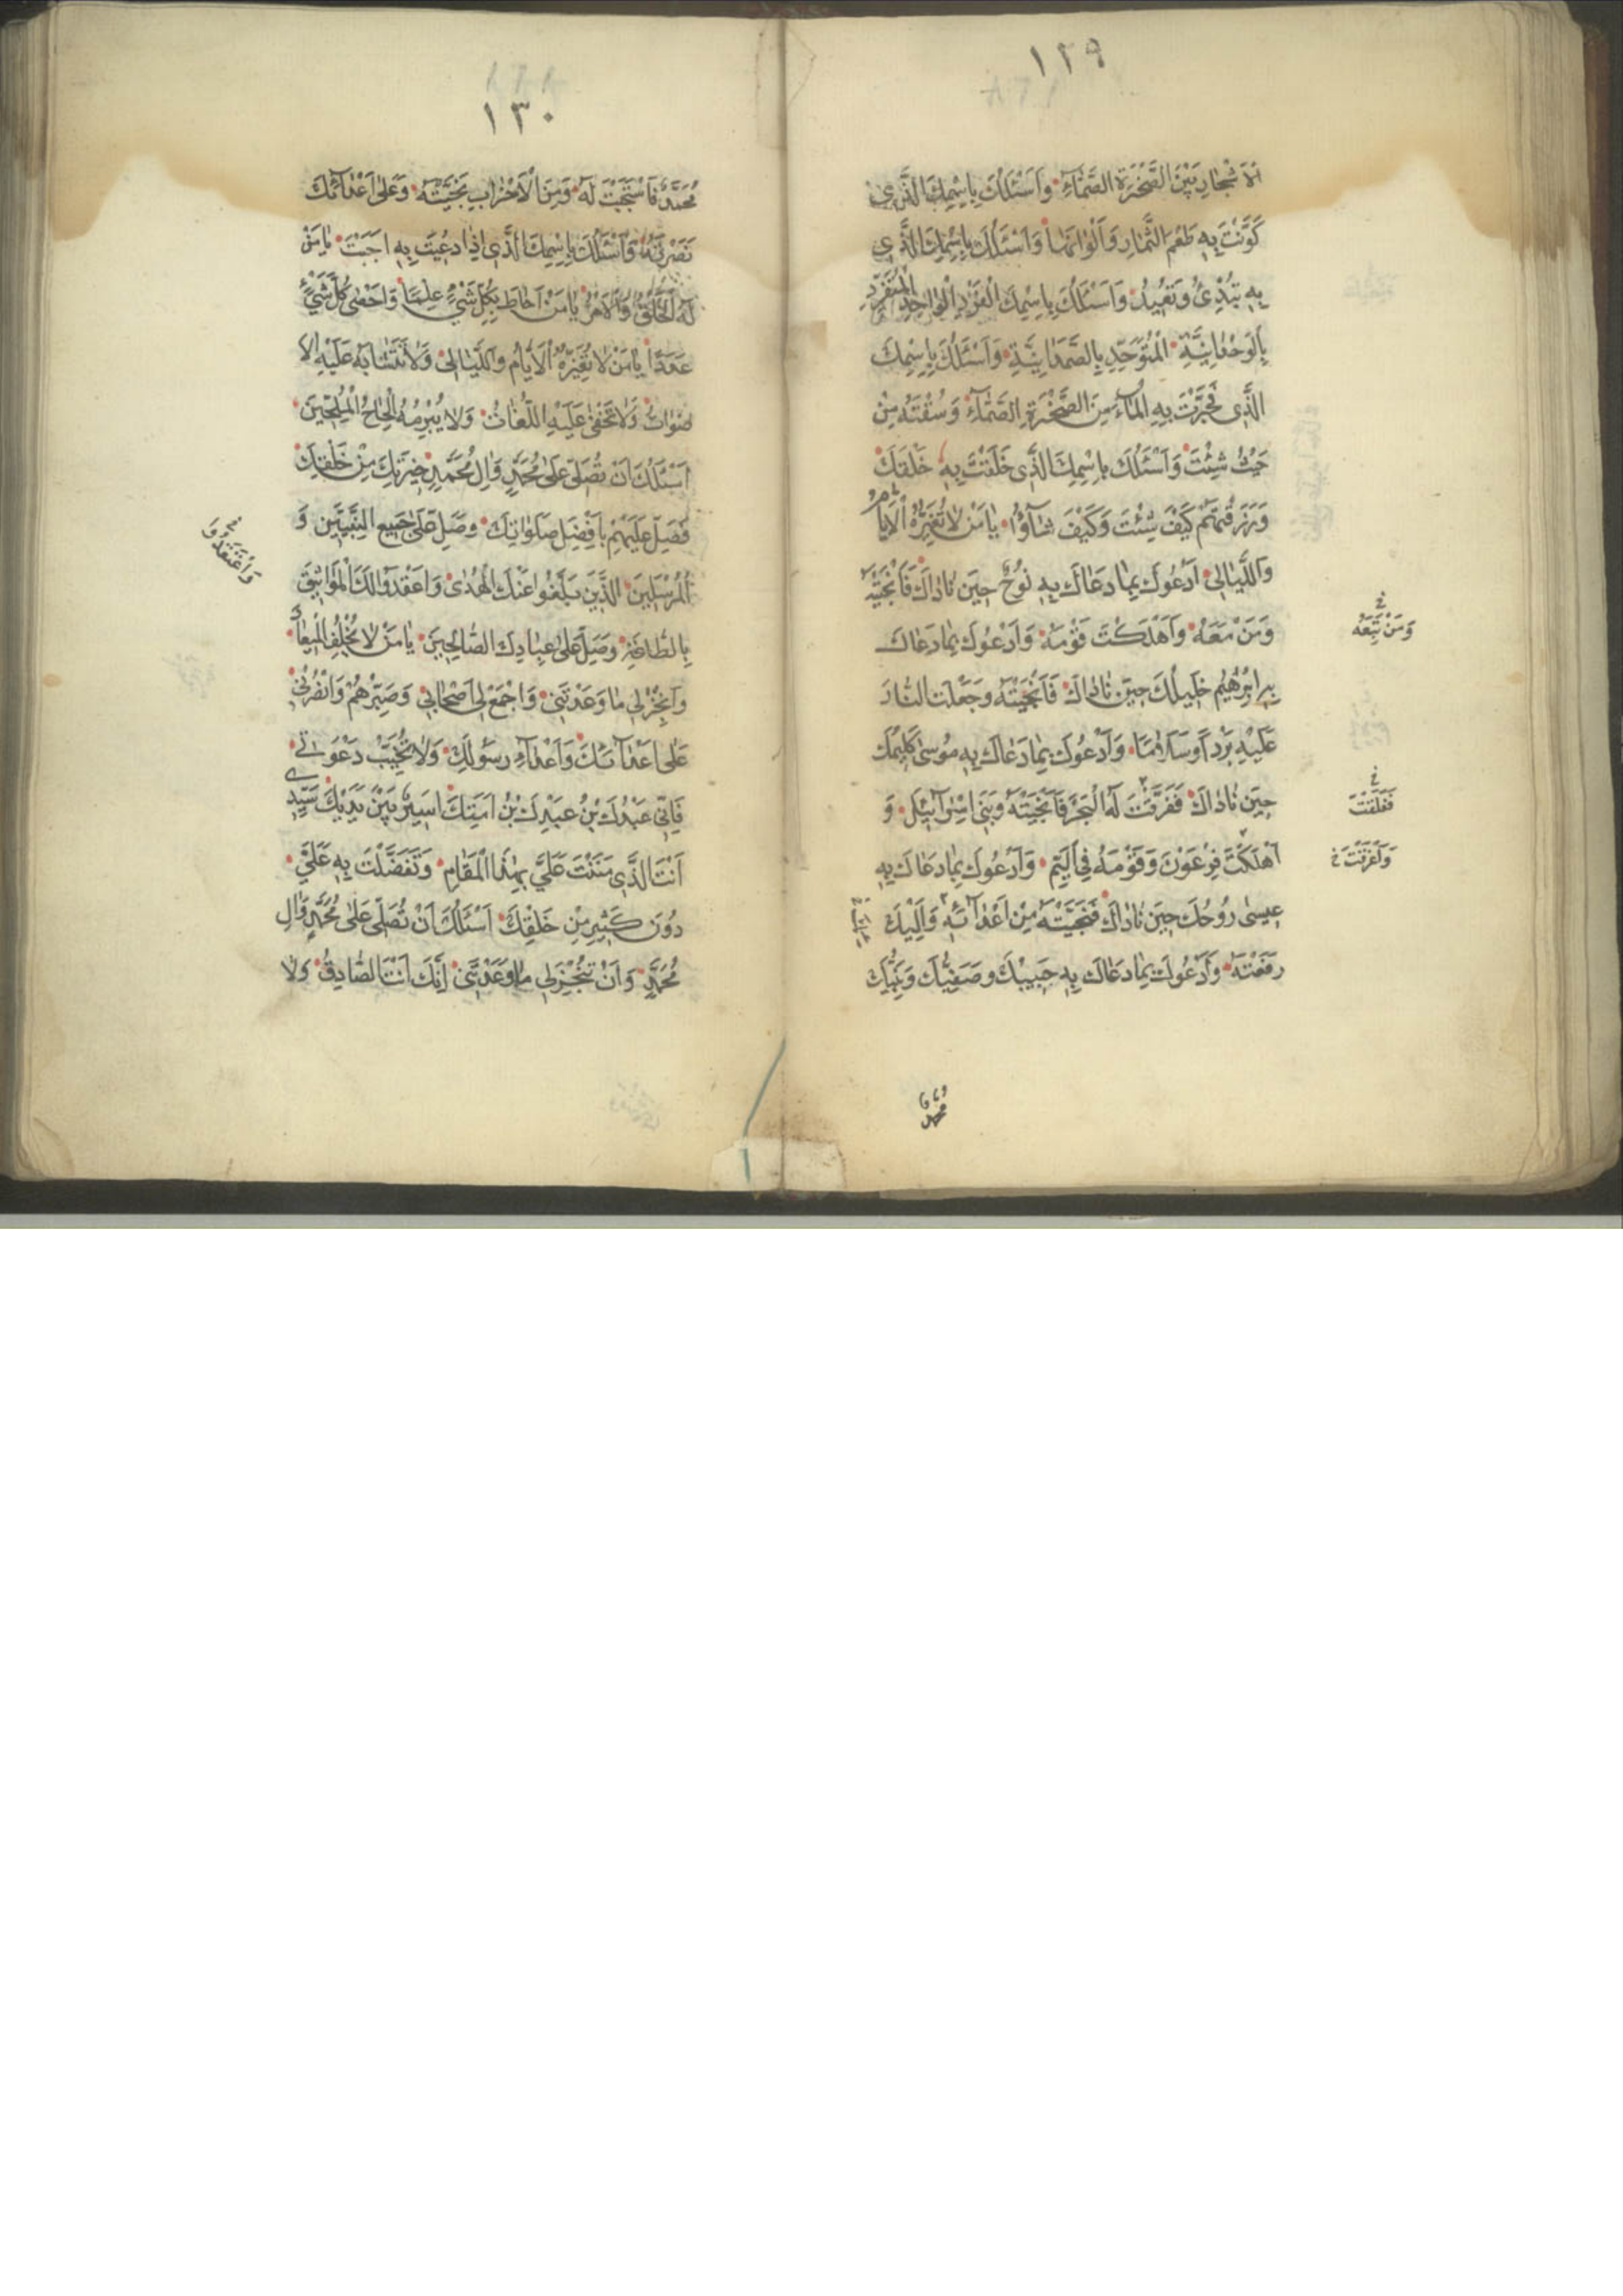 ١٢٩
الْاَشْجارِ بَيْنَ الصَّخْرَةِ الصَّمّآءِ وَاَسْئَلُكَ بِاِسْمِكَ الَّذى
كَوَّنْتَ بِهِ طَعْمَ الثِّمارِ وَاَلْوانَها وَاَسْئَلُكَ بِاِسْمِكَ الَّذى
بِهِ تُبْدِئُ وَتُعيدُ وَاَسْئَلُكَ بِاِسْمِكَ الْفَرْدِ الْواحِدِ الْمُتَفَرِّدِ
بِالْوَحْدانِيَّةِ الْمُتَوَحِّدِ بِالصَّمَدانِيَّةِ وَاَسْئَلُكَ بِاِسْمِكَ
الَّذى فَجَّرْتَ بِهِ الْمآءَ مِنَ الصَّخْرَةِ الصَّمّآءِ وَسُقْتَهُ مِنْ
حَيْثُ شِئْتَ وَاَسْئَلُكَ بِاِسْمِكَ الَّذى خَلَقْتَ بِهِ خَلْقَكَ
وَرَزَقْتَهُمْ كَيْفَ شِئْتَ وَكَيْفَ شآؤُا يا مَنْ لا تُغَيِّرُهُ الْاَيّامُ
وَاللَّيالى اَدْعُوكَ بِما دَعاكَ بِهِ نُوحٌ حينَ ناداكَ فَاَنْجَيْتَهُ
وَمَنْ مَعَهُ وَاَهْلَكْتَ قَوْمَهُ وَاَدْعُوكَ بِما دَعاكَ
وَمَنْ تَبِعَهُ خ
بِهِ اِبْرهيمُ خَليلُكَ حينَ ناداكَ فَاَنْجَيْتَهُ وَجَعَلْتَ النّارَ
عَلَيْهِ بَرْداً وَسَلاماً وَاَدْعُوكَ بِما دَعاكَ بِهِ مُوسى كَليمُكَ
حينَ ناداكَ فَفَرَّقْتَ لَهُ الْبَحْرَ فَاَنْجَيْتَهُ وَبَنى اِسْرآئيلَ وَ
فَفَلَقْتَ خ
اَهْلَكْتَ فِرْعَوْنَ وَقَوْمَهُ فِى الْيَمِّ وَاَدْعُوكَ بِما دَعاكَ بِهِ
وَاَغْرَقْتَ خ
عيسى رُوحُكَ حينَ ناداكَ فَنَجَّيْتَهُ مِنْ اَعْدآئِهِ وَاِلَيْكَ
رَفَعْتَهُ وَاَدْعُوكَ بِما دَعاكَ بِهِ حَبيبُكَ وَصَفِيُّكَ وَنَبِيُّكَ
محمد فا
١٣٠
مُحَمَّدٌ فَاسْتَجَبْتَ لَهُ وَمِنَ الْاَحْزابِ نَجَّيْتَهُ وَعَلى اَعْدآئِكَ
نَصَرْتَهُ وَاَسْئَلُكَ بِاِسْمِكَ الَّذى اِذا دُعيتَ بِهِ اَجَبْتَ يا مَنْ
لَهُ الْخَلْقُ وَالْاَمْرُ يا مَنْ اَحاطَ بِكُلِّ شَىْءٍ عِلْماً وَاَحْصى كُلَّ شَىْءٍ
عَدَداً يا مَنْ لا تُغَيِّرُهُ الْاَيّامُ وَاللَّيالى وَلا تَتَشابَهُ عَلَيْهِ الْا
صْواتُ وَلا تَخْفى عَلَيْهِ اللُّغاتُ وَلا يُبْرِمُهُ اِلْحاحُ الْمُلِحّينَ
اَسْئَلُكَ اَنْ تُصَلِّىَ عَلى مُحَمَّدٍ وَالِ مُحَمَّدٍ خِيَرَتِكَ مِنْ خَلْقِكَ
فَصَلِّ عَلَيْهِمْ بِاَفْضَلِ صَلَواتِكَ وَصَلِّ عَلى جَميعِ النَّبِيّينَ وَ
الْمُرْسَلينَ الَّذينَ بَلَّغُوا عَنْكَ الْهُدى وَاعْقَدُوا لَكَ الْمَواثيقَ
بِالطّاعَةِ وَصَلِّ عَلى عِبادِكَ الصّالِحينَ يا مَنْ لا يُخْلِفُ الْميعادَ
وَاَنْجِزْ لى ما وَعَدْتَنى وَاجْمَعْ لى اَصْحابى وَصَبِّرْهُمْ وَانْصُرْنى
عَلى اَعْدآئِكَ وَاَعْدآءِ رَسُولِكَ وَلا تُخَيِّبْ دَعْوَتى
فَاِنّى عَبْدُكَ بْنُ عَبْدِكَ بْنُ اَمَتِكَ اَسيرٌ بَيْنَ يَدَيْكَ سَيِّدى
اَنْتَ الَّذى مَنَنْتَ عَلَىَّ بِهذَا الْمَقامِ وَتَفَضَّلْتَ بِهِ عَلَىَّ
دُونَ كَثيرٍ مِنْ خَلْقِكَ اَسْئَلُكَ اَنْ تُصَلِّىَ عَلى مُحَمَّدٍ وَالِ
مُحَمَّدٍ وَاَنْ تُنْجِزَ لى ما وَعَدْتَنى اِنَّكَ اَنْتَ الصّادِقُ وَلا